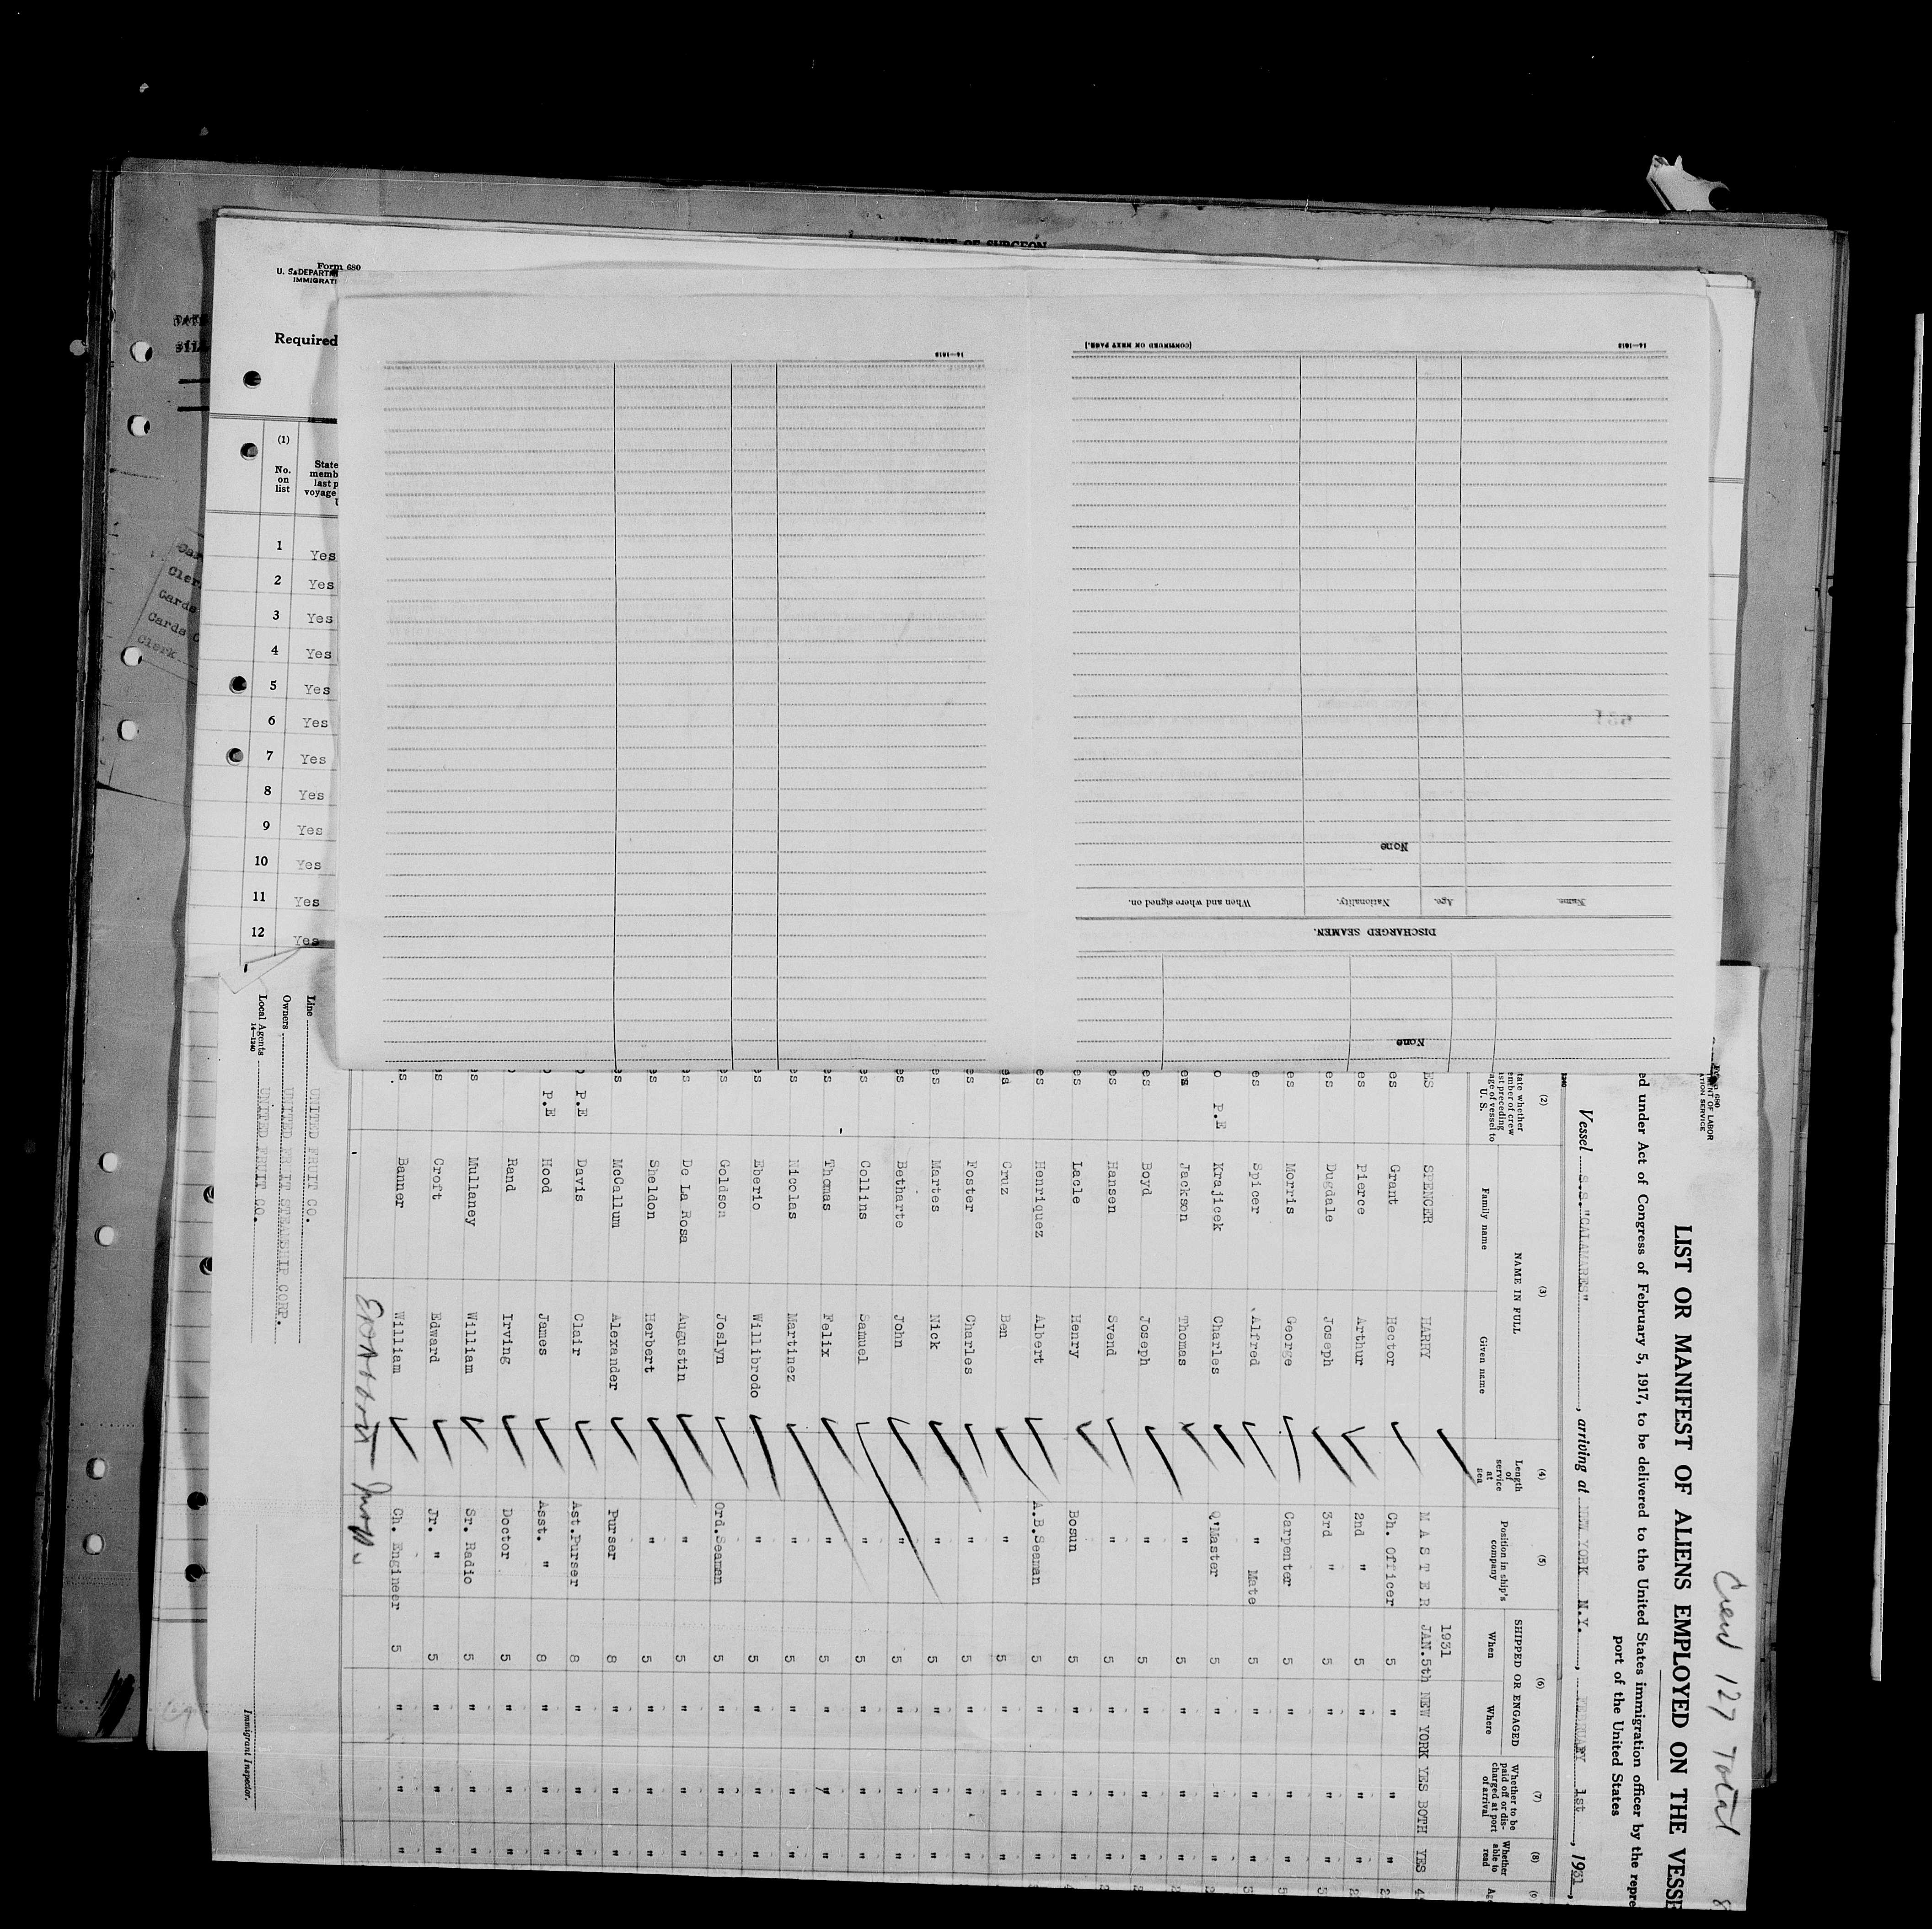 AFFIDAVIT OF SURGEON
Form 680
U. S. DEPARTM
IMMIGRATI
Required
(1)
No.
on
list
State
memb
last p
voyage
U
1 Yes
2 Yes
3 Yes
4 Yes
5 Yes
6 Yes
7 Yes
8 Yes
9 Yes
10 Yes
11 Yes
12 Yes
Car
Cler
Cards
Cards C
Clerk
14—1618
[CONTINUED ON NEXT PAGE.]
14—1618
None
DISCHARGED SEAMEN.
Name. Age. Nationality. When and where signed on.
None
Crew 127 Total
680
NT OF LABOR
ATION SERVICE
LIST OR MANIFEST OF ALIENS EMPLOYED ON THE VESSE
ed under Act of Congress of February 5, 1917, to be delivered to the United States immigration officer by the repre
port of the United States
Vessel S.S."CALAMARES", arriving at NEW YORK N.Y., FEBRUARY 1st, 1931,
(2) (3) (4) (5) (6) (7) (8) (9
tate whether
ember of crew
st preceding
age of vessel to
U. S.
NAME IN FULL
Family name Given name
Length
of
service
at
sea
Position in ship's
company
SHIPPED OR ENGAGED
When Where
Whether to be
paid off or dis-
charged at port
of arrival
Whether
able to
read
Ag
1931
ES SPENCER HARRY M A S T E R JAN.5th NEW YORK YES BOTH YES 4
es Grant Hector Ch. Officer 5 " " " 2
es Pierce Arthur 2nd " 5 " " " 2
es Dugdale Joseph 3rd " 5 " " " 3
es Morris George Carpenter 5 " " " 5
es Spicer Alfred " Mate 5 " " " 3
o P.E Krajicek Charles Q'Master 5 " " " 2
es Jackson Thomas " 5 " " " 2
es Boyd Joseph " 5 " " " 2
es Hansen Svend " 5 " " " 2
es Lacle Henry Bosun 5 " " " 4
es Henriquez Albert A.B.Seaman 5 " " "
es Cruz Ben " 5 " " "
es Foster Charles " 5 " " "
es Martes Nick " 5 " " "
es Betharte John " 5 " " "
es Collins Samuel " 5 " " "
es Thomas Felix " 5 " " "
es Nicolas Martinez " 5 " " "
es Eberio Willibrodo " 5 " " "
es Goldson Joslyn Ord.Seaman 5 " " "
es De La Rosa Augustin " 5 " " "
es Sheldon Herbert " 5 " " "
es McCallum Alexander Purser 8 " " "
o P.E Davis Clair Ast.Purser 8 " " "
o P.E Hood James Asst. " 8 " " "
o Rand Irving Doctor 5 " " "
es Mullaney William Sr. Radio 5 " " "
es Croft Edward Jr. " 5 " " "
es Banner William Ch. Engineer 5 " " "
Line UNITED FRUIT CO.
Owners UNITED FRUIT STEAMSHIP CORP.
Local Agents UNITED FRUIT CO.
14—1240
Immigrant Inspector.